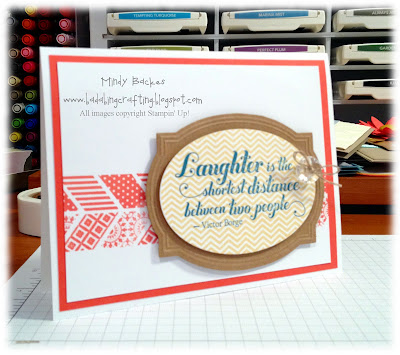 TEMPTING TURQUOISE
MARINA MIST
ALWAYS
PERFECT PLUM
Mindy Backes
www.badabingcrafting.blogspot.com
All images copyright Stampin' Up!
Laughter is the
shortest distance
between two people
— Victor Borge